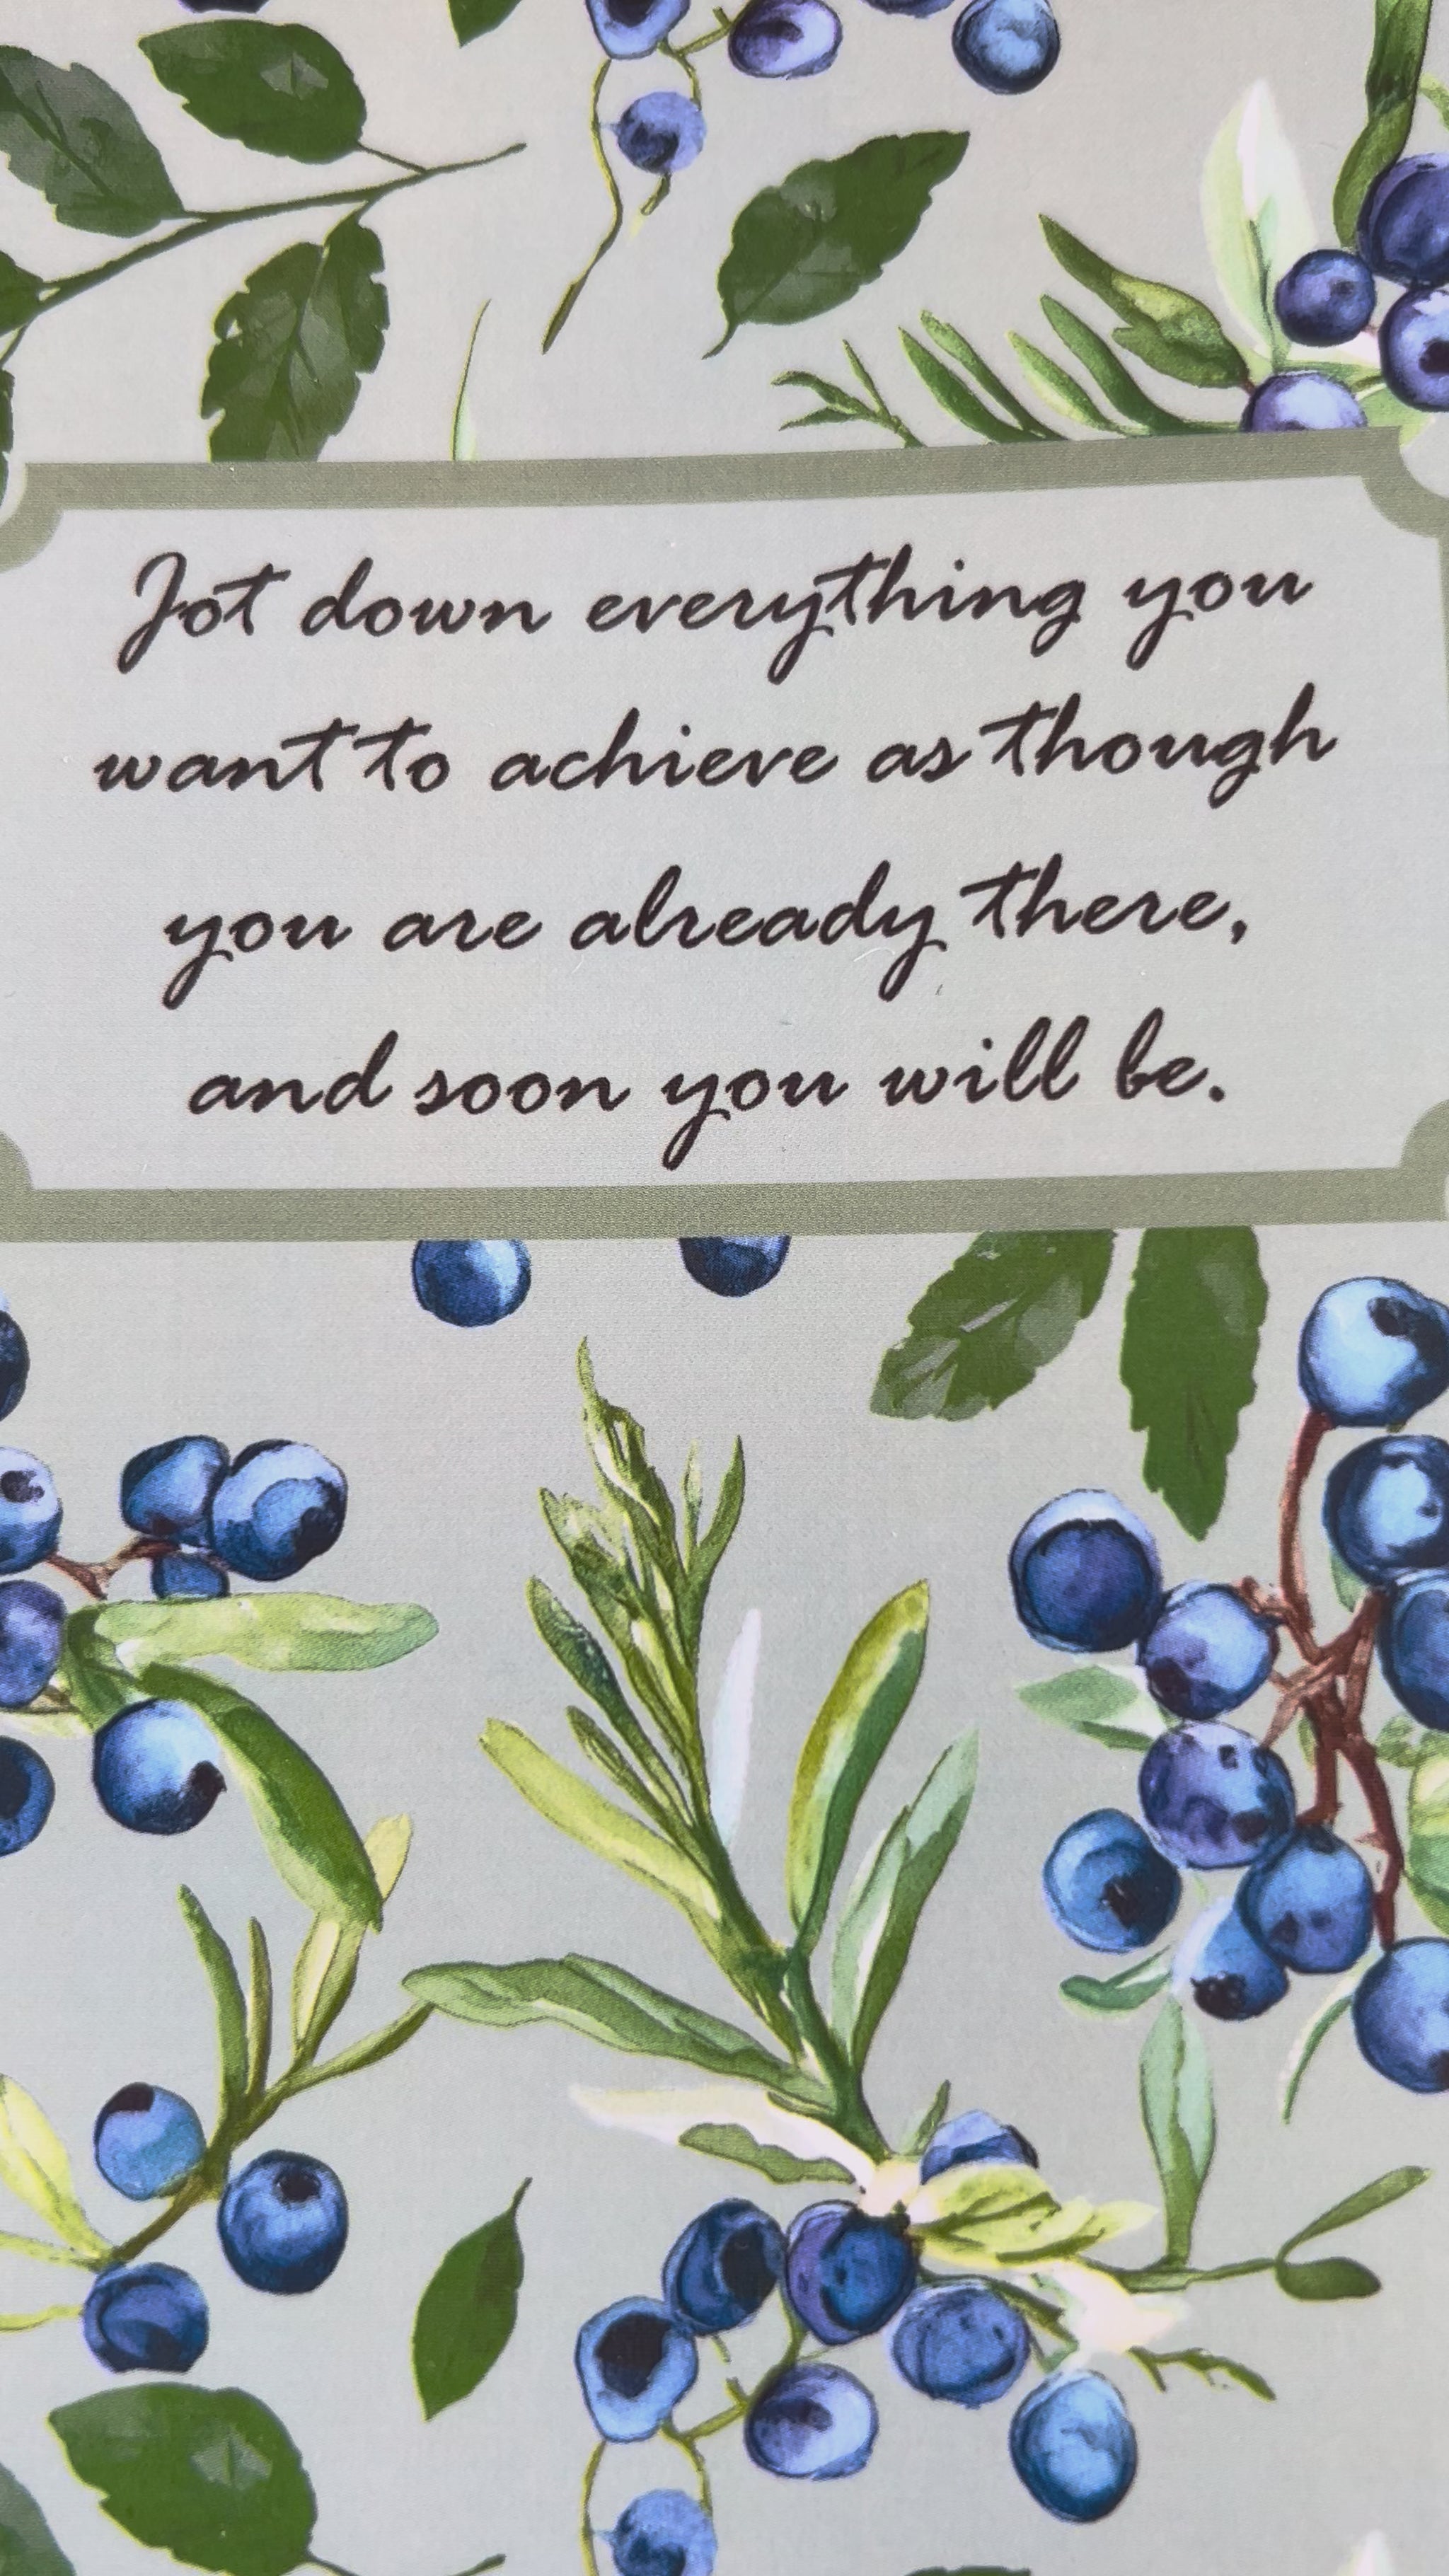 Jot down everything you
want to achieve as though
you are already there,
and soon you will be.